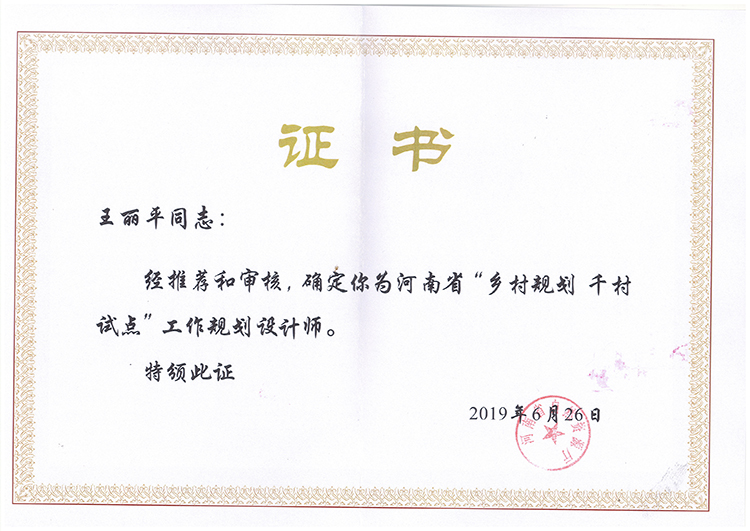 证书
王丽平同志：
经推荐和审核，确定你为河南省“乡村规划 千村
试点”工作规划设计师。
特颁此证
2019年6月26日
河南省自然资源厅